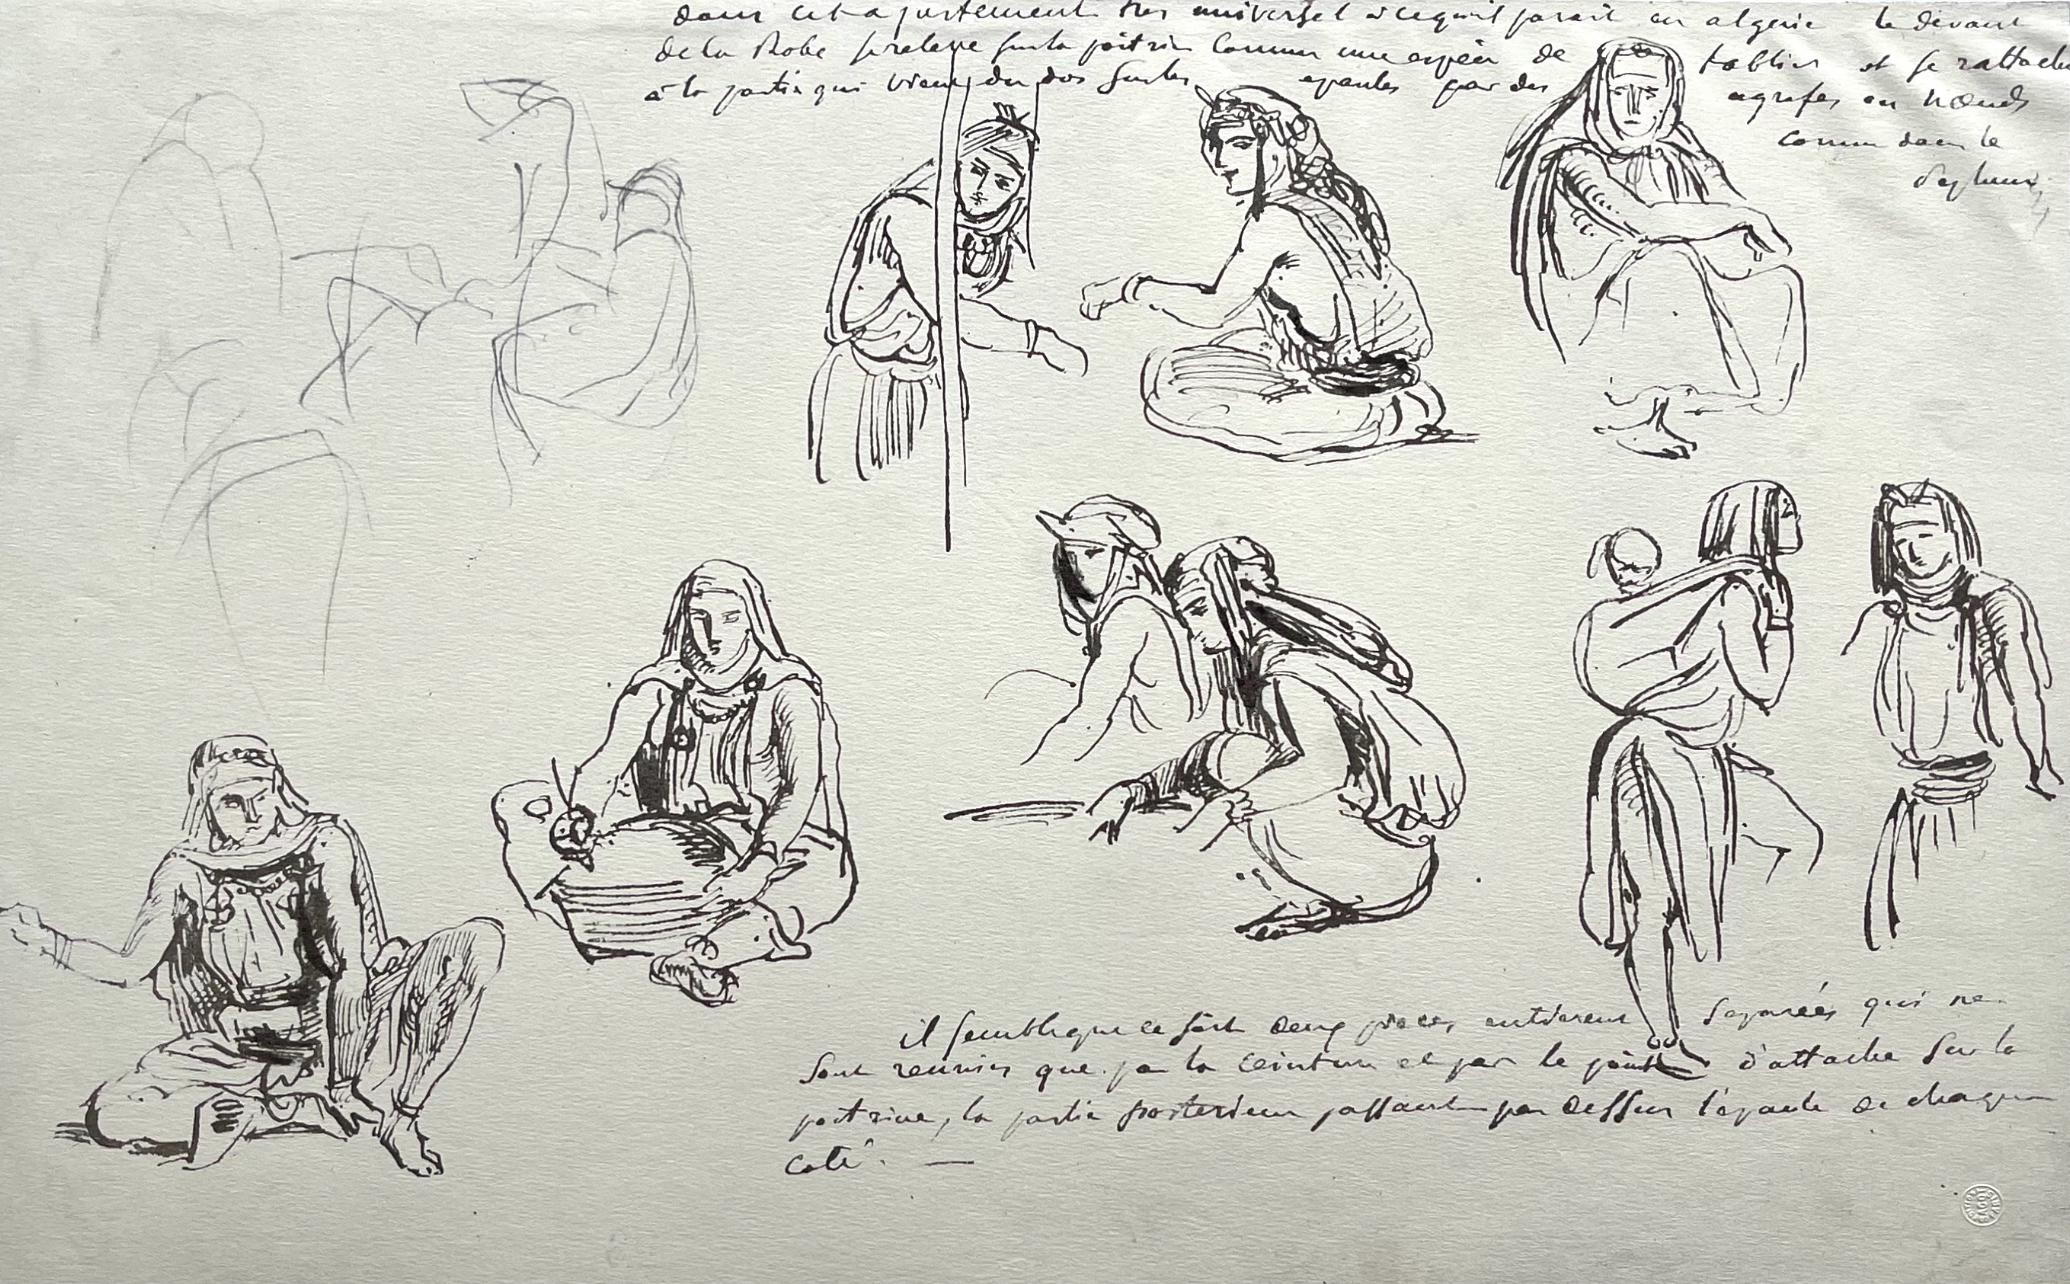 dans cet ajustement tres universel à ce qu'il parait en algérie le devant
de la Robe se releve sur la poitrine comme une espèce de tablier et se rattache
à la partie qui vient du dos sur les epaules par des agrafes ou nœuds
comme dans le
il semble que ce soit deux pieces entierement separées qui ne
sont reunies que par la ceinture et par le point d'attache sur la
poitrine, la partie posterieure passant par dessus l'epaule de chaque
coté. —